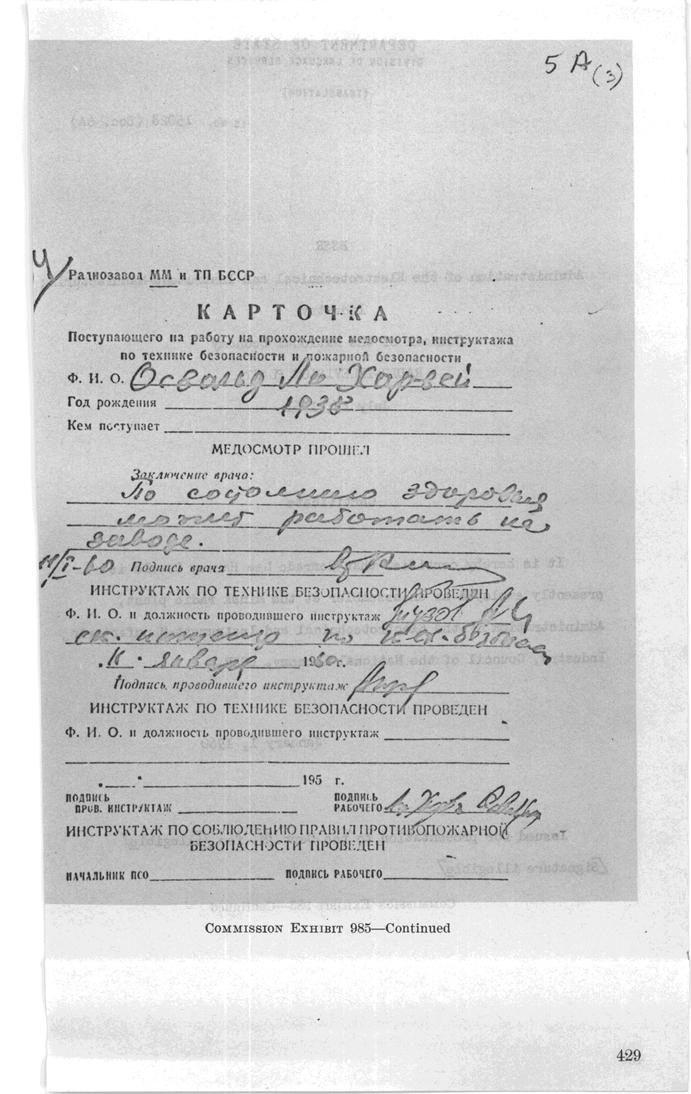 5 А (3)
Радиозавод ММ и ТП БССР
КАРТОЧКА
Поступающего на работу на прохождение медосмотра, инструктажа
по технике безопасности и пожарной безопасности
Ф. И. О. Освальд Ли Харвей
Год рождения 1938
Кем поступает
МЕДОСМОТР ПРОШЕЛ
Заключение врача:
По состоянию здоровья
может работать на
заводе.
11/I-60 Подпись врача
ИНСТРУКТАЖ ПО ТЕХНИКЕ БЕЗОПАСНОСТИ ПРОВЕДЕН
Ф. И. О. и должность проводившего инструктаж
ст. по тех.
11 января 1960г.
Подпись проводившего инструктаж
ИНСТРУКТАЖ ПО ТЕХНИКЕ БЕЗОПАСНОСТИ ПРОВЕДЕН
Ф. И. О. и должность проводившего инструктаж
195 г.
ПОДПИСЬ ПРОВ. ИНСТРУКТАЖ
ПОДПИСЬ РАБОЧЕГО
ИНСТРУКТАЖ ПО СОБЛЮДЕНИЮ ПРАВИЛ ПРОТИВОПОЖАРНОЙ
БЕЗОПАСНОСТИ ПРОВЕДЕН
НАЧАЛЬНИК ПСО ПОДПИСЬ РАБОЧЕГО
COMMISSION EXHIBIT 985—Continued
429